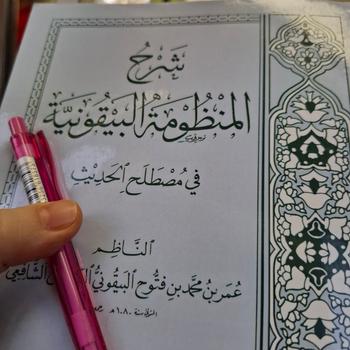 شرح
المنظومة البيقونية
في مصطلح الحديث
الناظم
عمر بن محمد بن فتوح البيقوني الشافعي